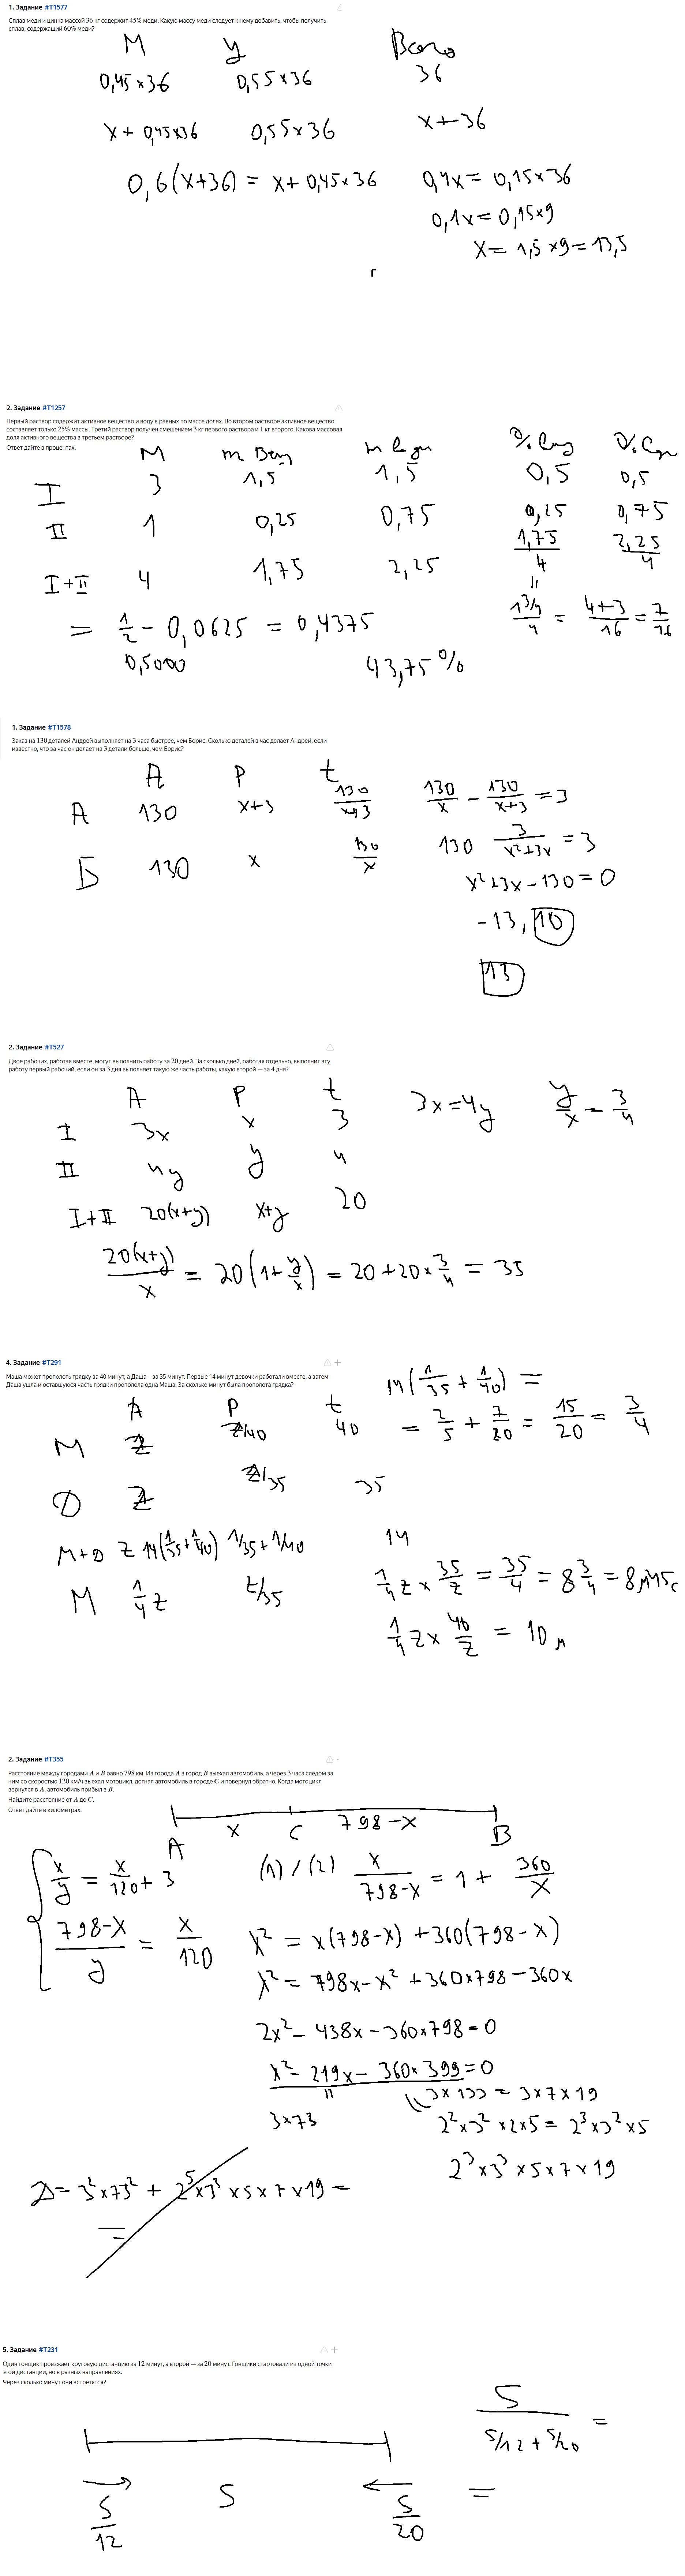 1. Задание #T1577
Сплав меди и цинка массой 36 кг содержит 45% меди. Какую массу меди следует к нему добавить, чтобы получить
сплав, содержащий 60% меди?
М У Всего
0,45×36 0,55×36 36
x + 0,45×36 0,55×36 x+36
0,6(x+36) = x + 0,45×36 0,4x = 0,15×36
0,1x = 0,15×9
x = 1,5×9 = 13,5
2. Задание #T1257
Первый раствор содержит активное вещество и воду в равных по массе долях. Во втором растворе активное вещество
составляет только 25% массы. Третий раствор получен смешением 3 кг первого раствора и 1 кг второго. Какова массовая
доля активного вещества в третьем растворе?
Ответ дайте в процентах.
М
I 3 1,5 1,5 0,5 0,5
II 1 0,25 0,75 0,25 0,75
I+II 4 1,75 2,25 1,75/4 2,25/4
=
= 1/2 - 0,0625 = 0,4375 1 3/4 / 4 = 4+3/16 = 7/16
0,5000 43,75%
1. Задание #T1578
Заказ на 130 деталей Андрей выполняет на 3 часа быстрее, чем Борис. Сколько деталей в час делает Андрей, если
известно, что за час он делает на 3 детали больше, чем Борис?
A P t
А 130 x+3 130/x+3 130/x - 130/x+3 = 3
Б 130 x 130/x 130 3/x²+3x = 3
x²+3x-130=0
-13, 10
13
2. Задание #T527
Двое рабочих, работая вместе, могут выполнить работу за 20 дней. За сколько дней, работая отдельно, выполнит эту
работу первый рабочий, если он за 3 дня выполняет такую же часть работы, какую второй — за 4 дня?
A P t 3x=4y y/x = 3/4
I 3x x 3
II 4y y 4
I+II 20(x+y) x+y 20
20(x+y)/x = 20(1+y/x) = 20+20×3/4 = 35
4. Задание #T291
Маша может прополоть грядку за 40 минут, а Даша – за 35 минут. Первые 14 минут девочки работали вместе, а затем
Даша ушла и оставшуюся часть грядки прополола одна Маша. За сколько минут была прополота грядка?
14(1/35 + 1/40) =
= 2/5 + 7/20 = 15/20 = 3/4
A P t
M z z/40 40
D z z/35 35
M+D z 14(1/35+1/40) 1/35+1/40 14
M 1/4 z z/35 1/4 z × 35/z = 35/4 = 8 3/4 = 8м45с
1/4 z × 40/z = 10м
2. Задание #T355
Расстояние между городами A и B равно 798 км. Из города A в город B выехал автомобиль, а через 3 часа следом за
ним со скоростью 120 км/ч выехал мотоцикл, догнал автомобиль в городе C и повернул обратно. Когда мотоцикл
вернулся в A, автомобиль прибыл в B.
Найдите расстояние от A до C.
Ответ дайте в километрах.
A x C 798-x B
x/y = x/120 + 3 (1)/(2) x/798-x = 1 + 360/x
798-x/y = x/120 x² = x(798-x) + 360(798-x)
x² = 798x - x² + 360×798 - 360x
2x² - 438x - 360×798 = 0
x² - 219x - 360×399 = 0
3×73 3×133 = 3×7×19
2²×3²×2×5 = 2³×3²×5
2³×3³×5×7×19
D = 3²×73² + 2⁵×3³×5×7×19 =
=
5. Задание #T231
Один гонщик проезжает круговую дистанцию за 12 минут, а второй — за 20 минут. Гонщики стартовали из одной точки
этой дистанции, но в разных направлениях.
Через сколько минут они встретятся?
S/S/12+S/20 =
S/12 S S/20 =